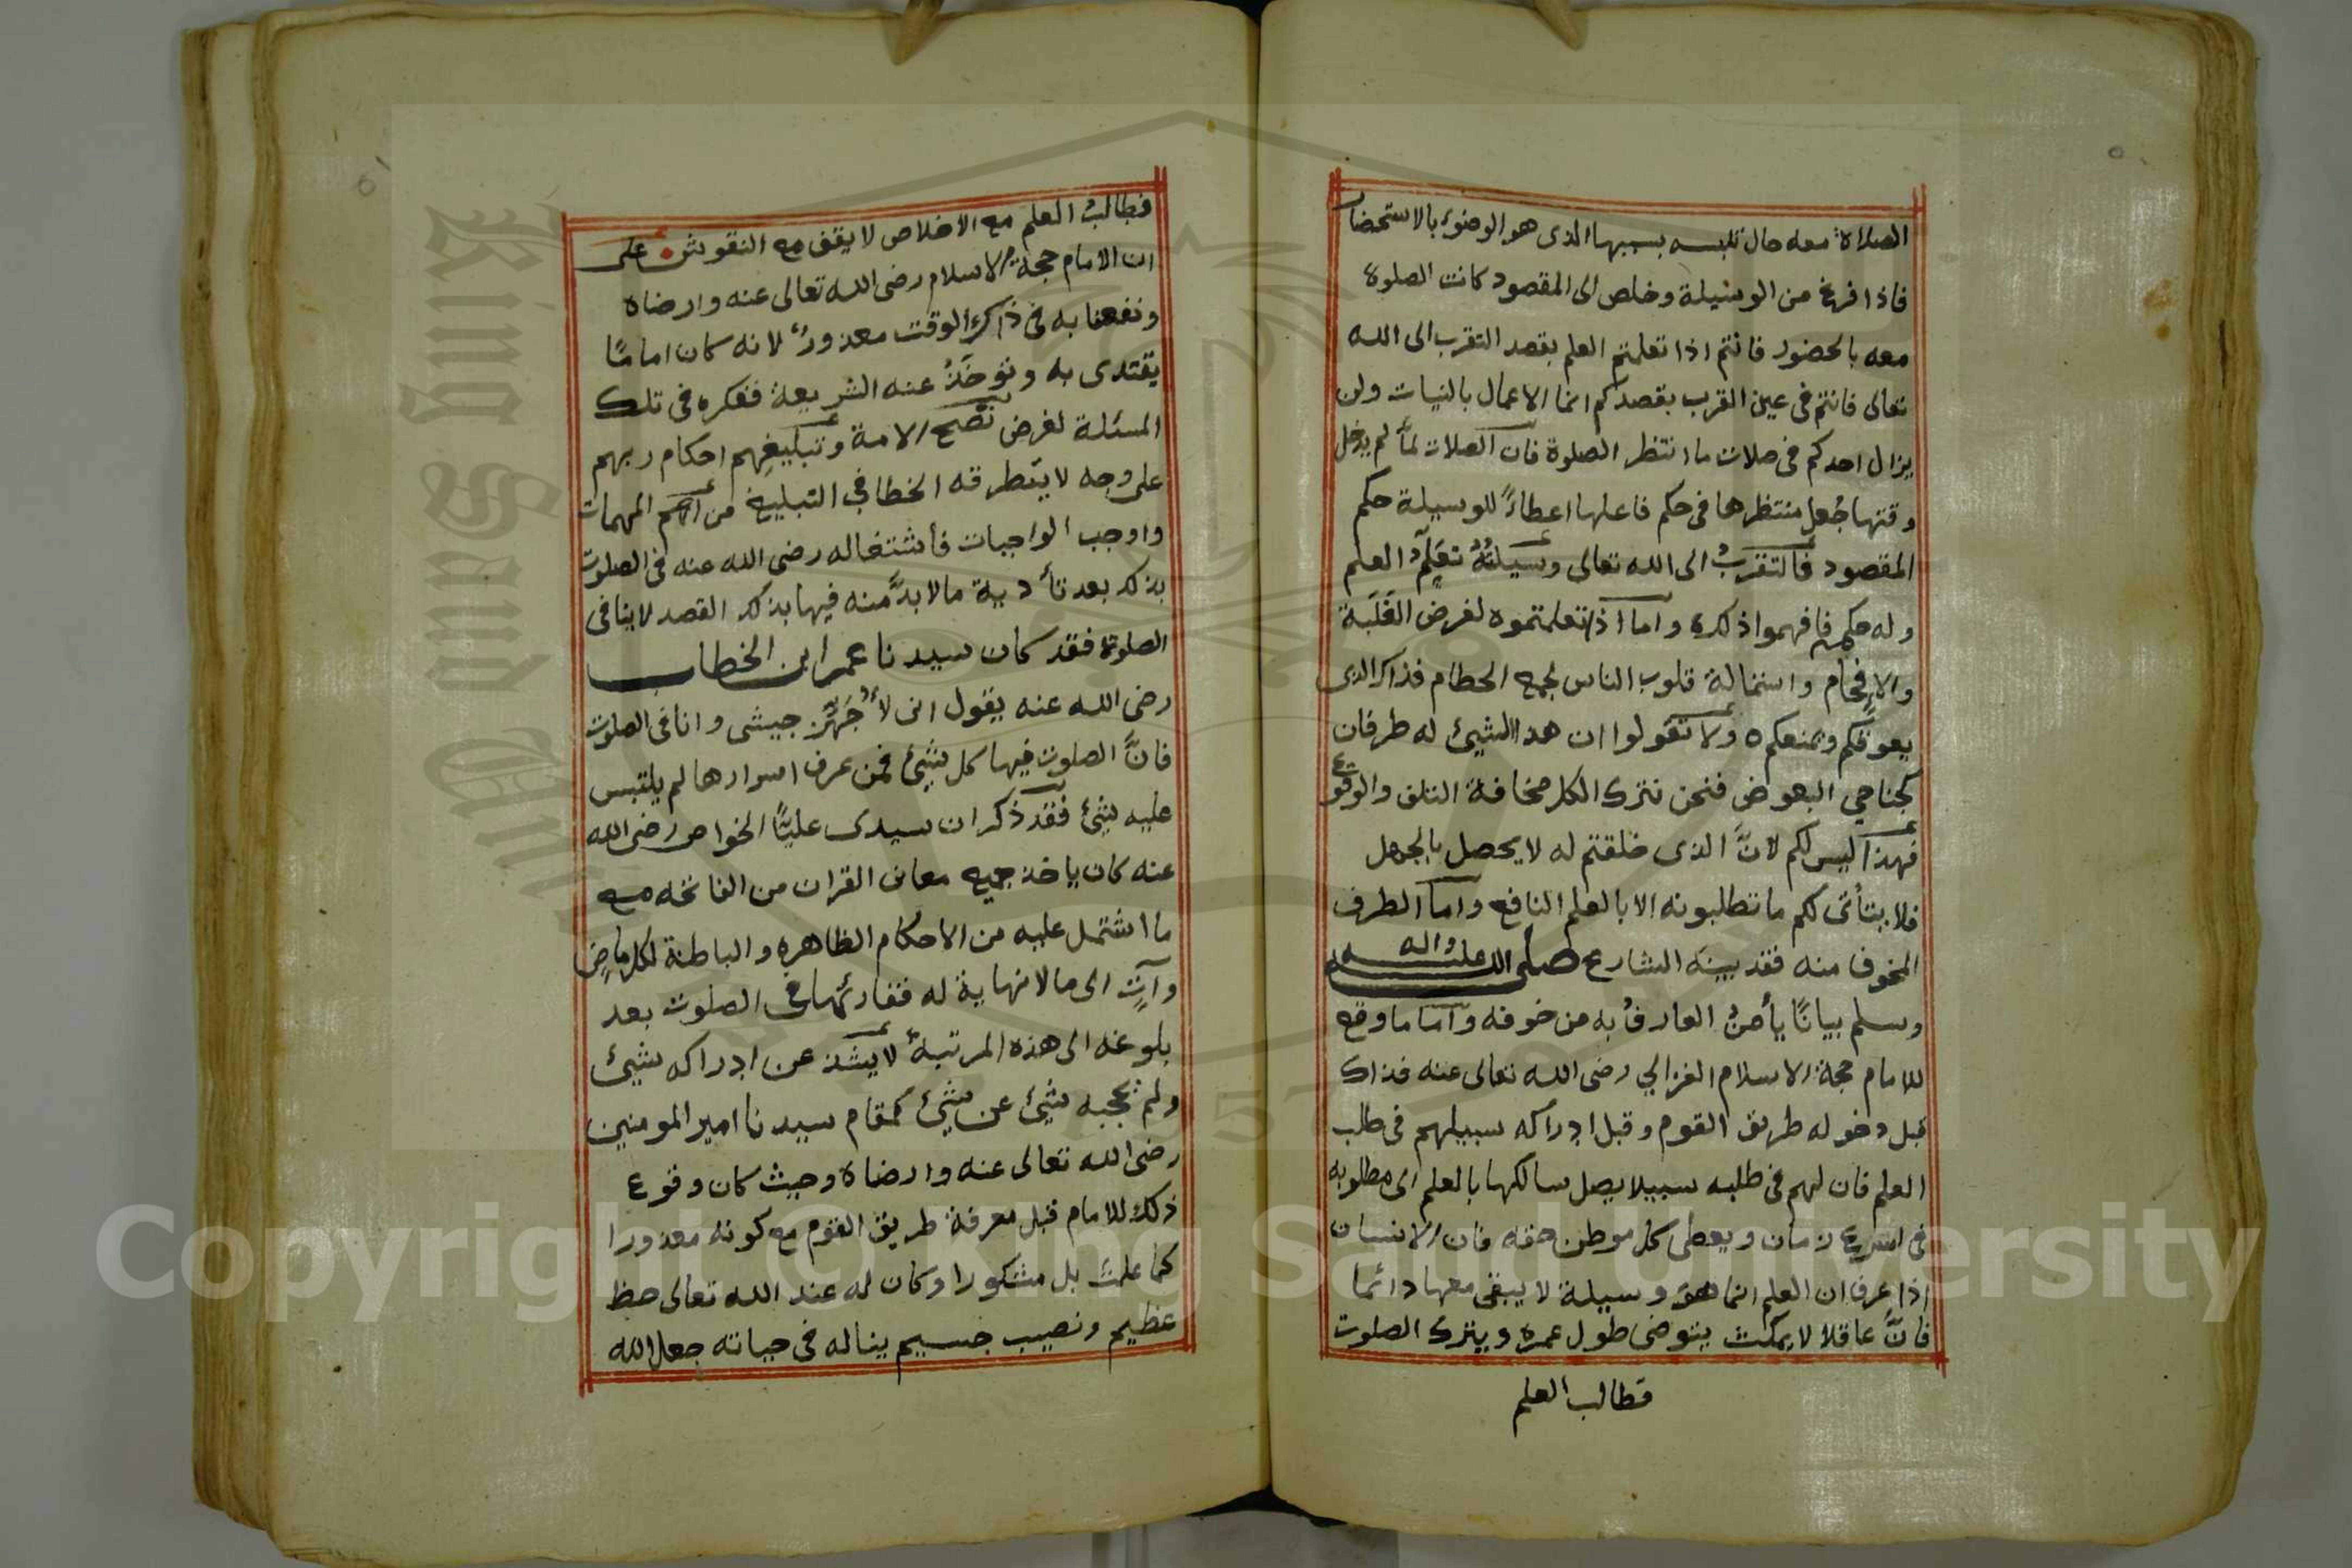 الصلاة معه حال تلبسه بسببها الذى هو الوضوء بالاستحضار
فاذا فرغ من الوسيلة وخلص الى المقصود كانت الصلوة
معه بالحضور فانتم اذا تعلمتم العلم بقصد التقرب الى الله
تعالى فانتم فى عين القرب بقصدكم انما الاعمال بالنيات ولن
يزال احدكم فى صلات ما انتظر الصلوة فان الصلات لمّا لم يدخل
وقتها جُعل منتظرها فى حكم فاعلها اعطاءً للوسيلة حكم
المقصود فالتقربُ الى الله تعالى وسيلتُهُ تعلّم العلم
وله حكمه فافهموا ذلك واما اذا تعلمتموه لغرض الغَلَبة
والافحام واستمالة قلوب الناس لجمع الحطام فذاك الذى
يعوقكم ويمنعكم ولا تقولوا ان هذا الشيئ له طرفان
كجناحي البعوض فنحن نترك الكل مخافة التلف والوقوع
فهذا ليس لكم لانّ الذى خلقتم له لا يحصل بالجهل
فلا يتأتى لكم ما تطلبونه الا بالعلم النافع واما الطرف
المخوف منه فقد بينه الشارع صلى الله عليه واله وسلم
وسلم بيانًا يأمنُ العارفُ به من خوفه واما ما وقع
للامام حجة الاسلام الغزالي رضى الله تعالى عنه فذاك
قبل دخوله طريق القوم وقبل ادراكه سبيلهم فى طلب
العلم فان لهم فى طلبه سبيلا يصل سالكها بالعلم الى مطلوبه
فى اسرع زمان ويعطى كل موطن حقه فان الانسان
اذا عرف ان العلم انما هو وسيلة لا يبقى معها دائما
فانّ عاقلا لا يمكث يتوضى طول عمره ويترك الصلوت
فطالب العلم
فطالبُ العلم مع الاخلاص لا يقف مع النقوش على
ان الامام حجة الاسلام رضى الله تعالى عنه وارضاه
ونفعنا به فى ذاك الوقت معذورٌ لانه كان امامًا
يقتدى به وتوخَذُ عنه الشريعة ففكره فى تلك
المسئلة لغرض نصح الامة وتبليغهم احكام ربهم
على وجه لا يتطرقه الخطا في التبليغ من اهم المهمات
واوجب الواجبات فاشتغاله رضى الله عنه فى الصلوت
بذلك بعد تأدية ما لا بدَّ منه فيها بذلك القصد لا ينافى
الصلوة فقد كان سيدنا عمر ابن الخطاب
رضى الله عنه يقول انى لأُجَهِّز جيشى وانا فى الصلوت
فانَّ الصلوت فيها كل شيئ فمن عرف اسرارها لم يلتبس
عليه شيئ فقد ذكر ان سيدى عليًّا الخواص رضى الله
عنه كان ياخذ جميع معانى القران من الفاتحه مع
ما اشتمل عليه من الاحكام الظاهره والباطنة لكل ماضٍ
وآتٍ الى ما لا نهاية له فقارئها في الصلوت بعد
بلوغه الى هذه المرتبة لا يشذ عن ادراكه شيئ
ولم يحجبه شيئ عن شيئ كمقام سيدنا امير المومنين
رضى الله تعالى عنه وارضاه وحيث كان وقوع
ذلك للامام قبل معرفة طريق القوم مع كونه معذورا
كما علمتَ بل مشكورا وكان له عند الله تعالى حظ
عظيم ونصيب جسيم يناله فى حياته جعل الله
Copyright © King Saud University